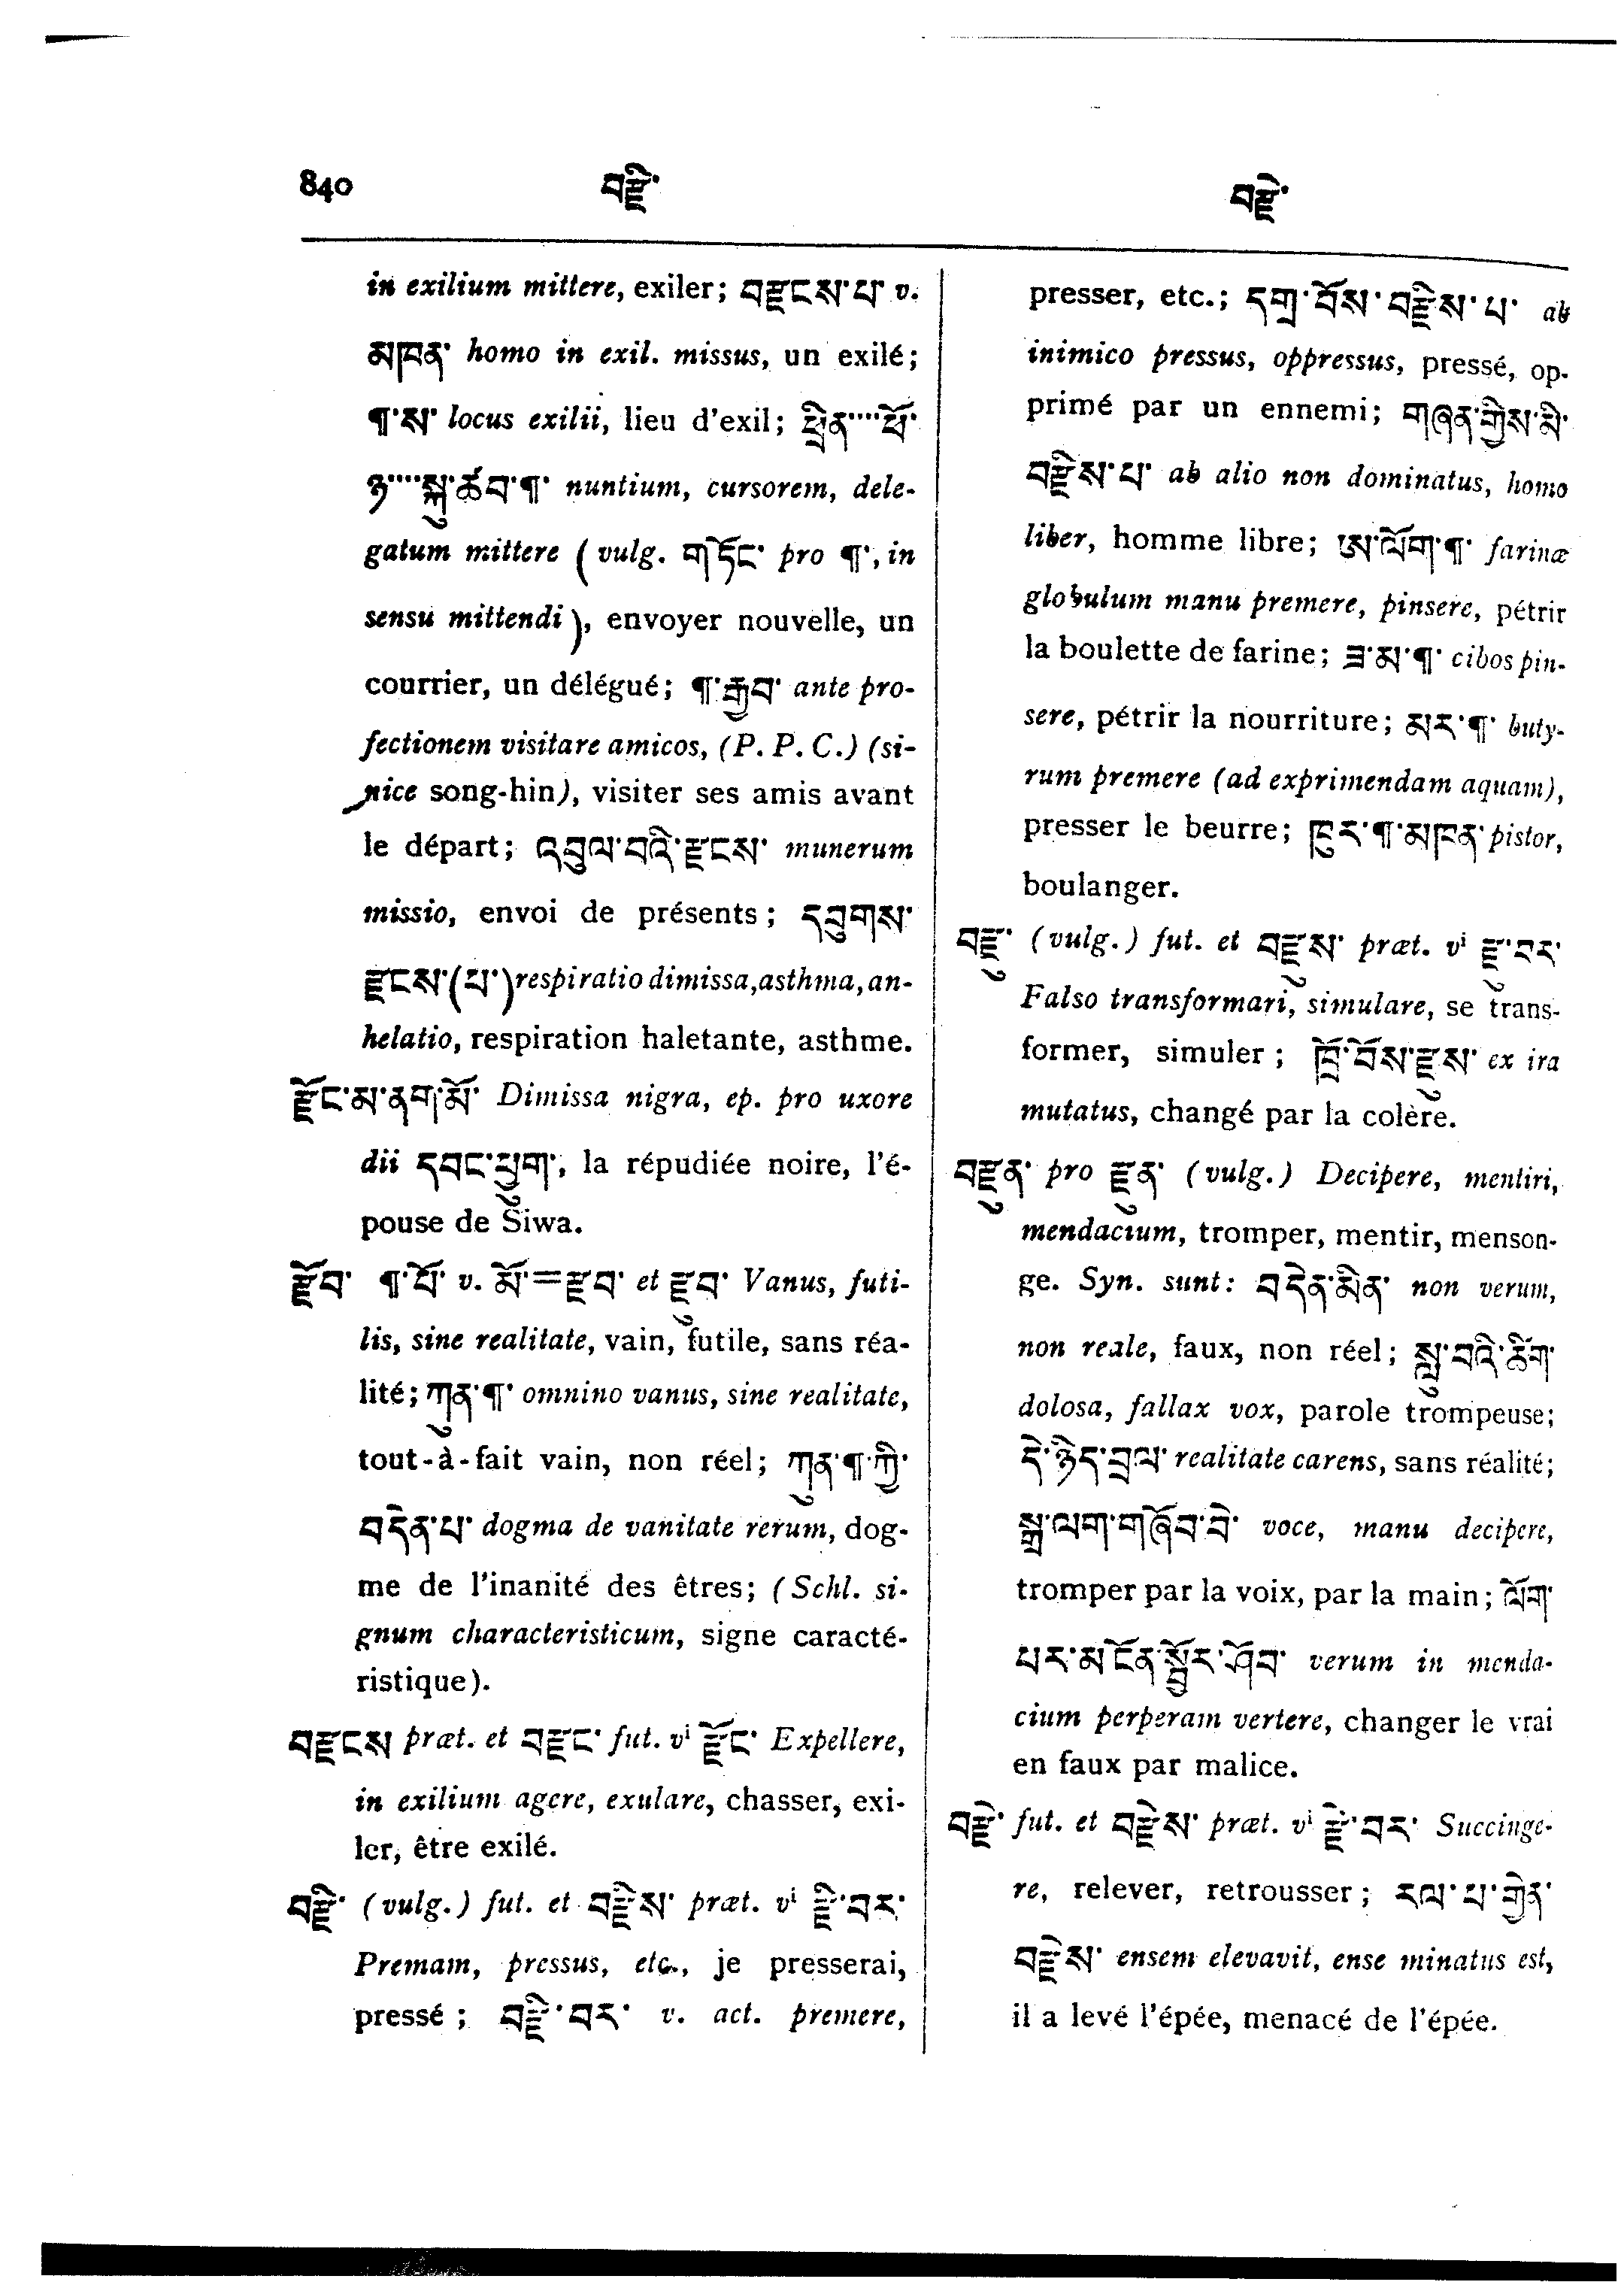 840 བརྫི་ བརྫེ་
in exilium mittere, exiler; བརྫངས་པ་ v.
མཁན་ homo in exil. missus, un exilé;
¶་ས་ locus exilii, lieu d'exil; ཕྲིན་....ཕོ་
ཉ་....སྐུ་ཚབ་¶་ nuntium, cursorem, dele-
gatum mittere (vulg. གཏོང་ pro ¶་, in
sensu mittendi), envoyer nouvelle, un
courrier, un délégué; ¶་རྒྱབ་ ante pro-
fectionem visitare amicos, (P. P. C.) (si-
nice song-hin), visiter ses amis avant
le départ; འབུལ་བའི་རྫངས་ munerum
missio, envoi de présents; དབུགས་
རྫངས་(པ་) respiratio dimissa, asthma, an-
helatio, respiration haletante, asthme.
རྫོང་མ་ནག་མོ་ Dimissa nigra, ep. pro uxore
dii དབང་ཕྱུག་, la répudiée noire, l'é-
pouse de Siwa.
རྫོབ་ ¶་པོ་ v. མོ་=རྫབ་ et རྫུབ་ Vanus, futi-
lis, sine realitate, vain, futile, sans réa-
lité; ཀུན་¶་ omnino vanus, sine realitate,
tout-à-fait vain, non réel; ཀུན་¶་ཀྱི་
བདེན་པ་ dogma de vanitate rerum, dog-
me de l'inanité des êtres; (Schl. si-
gnum characteristicum, signe caracté-
ristique).
བརྫངས præt. et བརྫང་ fut. vⁱ རྫོང་ Expellere,
in exilium agere, exulare, chasser, exi-
ler, être exilé.
བརྫི་ (vulg.) fut. et བརྫིས་ præt. vⁱ རྫི་བར་
Premam, pressus, etc., je presserai,
pressé; བརྫི་བར་ v. act. premere,
presser, etc.; དགྲ་བོས་བརྫིས་པ་ ab
inimico pressus, oppressus, pressé, op-
primé par un ennemi; གཞན་གྱིས་མི་
བརྫིས་པ་ ab alio non dominatus, homo
liber, homme libre; ཨ་ལོག་¶་ farinæ
globulum manu premere, pinsere, pétrir
la boulette de farine; ཟ་མ་¶་ cibos pin-
sere, pétrir la nourriture; མར་¶་ buty-
rum premere (ad exprimendam aquam),
presser le beurre; ཁུར་¶་མཁན་ pistor,
boulanger.
བརྫུ་ (vulg.) fut. et བརྫུས་ præt. vⁱ རྫུ་བར་
Falso transformari, simulare, se trans-
former, simuler; ཁྲོ་བོས་རྫུས་ ex ira
mutatus, changé par la colère.
བརྫུན་ pro རྫུན་ (vulg.) Decipere, mentiri,
mendacium, tromper, mentir, menson-
ge. Syn. sunt: བདེན་མིན་ non verum,
non reale, faux, non réel; སླུ་བའི་ཚིག་
dolosa, fallax vox, parole trompeuse;
དེ་ཉིད་བྲལ་ realitate carens, sans réalité;
སྒྲ་ལག་གཞོབ་བེ་ voce, manu decipere,
tromper par la voix, par la main; ལོག་
པར་མངོན་སྦྱོར་ཤོབ་ verum in menda-
cium perperam vertere, changer le vrai
en faux par malice.
བརྫེ་ fut. et བརྫེས་ præt. vⁱ རྫེ་བར་ Succinge-
re, relever, retrousser; རལ་པ་གྱེན་
བརྫེས་ ensem elevavit, ense minatus est,
il a levé l'épée, menacé de l'épée.